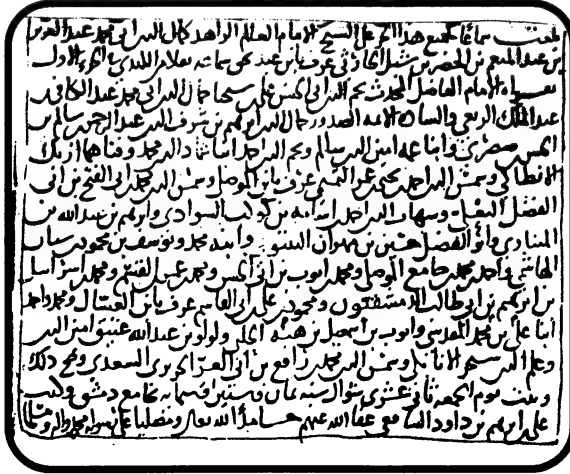 بلغت سماعا لجميع هذا الجزء على الشيخ الامام العالم الزاهد كمال الدين ابي محمد عبد العزيز
بن عبد المنعم بن الخضر بن شبل الحارثي عرف بابن عبد بحق سماعه في الجزء الاول
بقراءة الامام الفاضل المحدث نجم الدين ابي الحسن علي جمال الدين ابي محمد عبد الكافي بن
عبد الملك الربعي والسادة الائمة الصدور جمال الدين ابرهيم بن شرف الدين عبد الرحمن بن سالم بن
الحسن بن صصرى وابنا عمه امين الدين سالم ونجم الدين احمد ابنا عماد الدين محمد وفتاهما ازبك
الانطاكي وشمس الدين احمد بن يحيى عرف بابن الموصلي وشمس الدين محمد بن ابي الفتح بن ابي
الفضل البعلي وشهاب الدين احمد بن اسامة بن كوكب السوادي وابرهيم بن عبد الله بن
وابو الفضل حسين بن مهران وابنه محمد ويوسف بن محمود بن
الهاشمي واحمد بن محمد بن جامع الموصلي ومحمد بن ايوب بن ابي الحسن ومحمد بن ومحمد بن اسرائيل
بن ابرهيم بن ابي طالب الدمشقيون ومحمود بن علي بن ابي القاسم عرف بابن العسال ومحمد واحمد
ابنا علي بن محمد المقدسي وايوب بن اسمعيل بن هبة الله ولولو بن عبد الله عتيق امين الدين
وعلم الدين سنجر الاتابكي وشمس الدين محمد بن رافع بن ابي العز الجزري السعدي وصح ذلك
وثبت يوم الجمعة ثاني عشري شوال سنة ثمان وستين وستمائة بجامع دمشق وكتب
علي بن ابرهيم بن داود الشافعي عفا الله عنهم حامدا لله تعالى ومصليا على رسوله محمد واله ومسلما